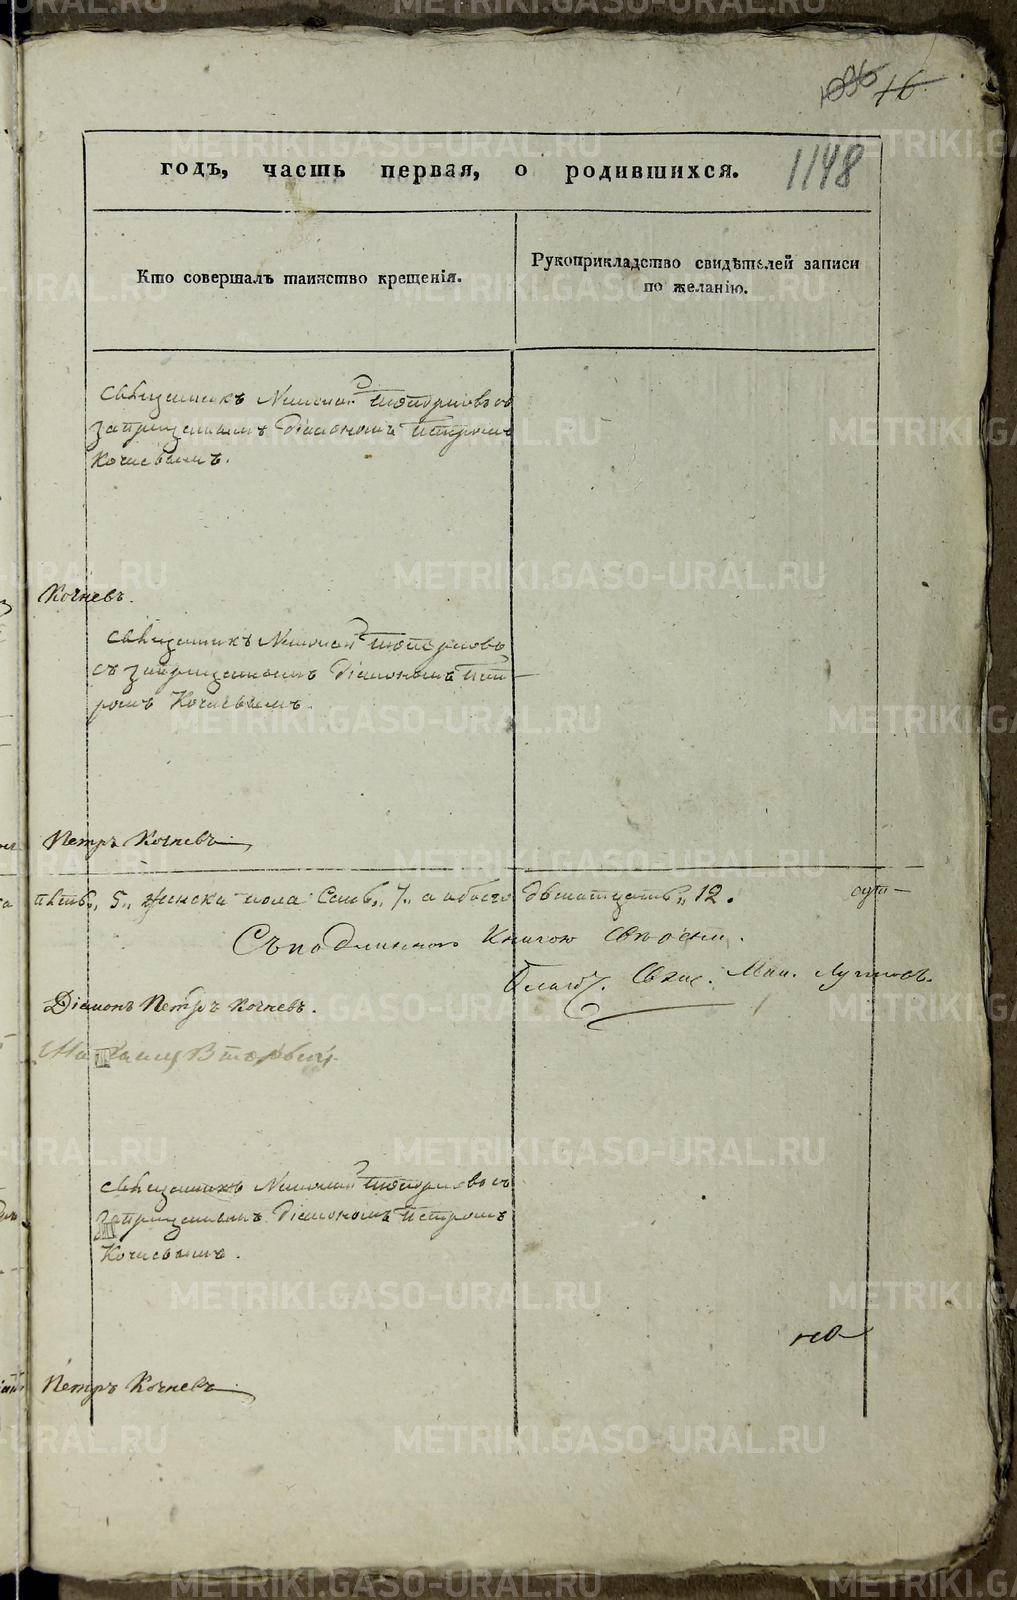 1148
годъ, часть первая, о родившихся.
Кто совершалъ таинство крещенія.
Рукоприкладство свидѣтелей записи
по желанію.
Священникъ Николай Топорковъ съ
запрещеннымъ Діакономъ Петромъ
Кочневымъ.
Кочневъ.
Священникъ Николай Топорковъ
съ запрещеннымъ Діакономъ Пет-
ромъ Кочневымъ.
Петръ Кочневъ
пять, 5, женска пола Семь, 7, а обоего двенатцать, 12.
Съ подлинною Книгою свѣрялъ.
Благоч. Свящ.
Діаконъ Петръ Кочневъ.
Священникъ Николай Топорковъ съ
запрещеннымъ Діакономъ Петромъ
Кочневымъ.
Петръ Кочневъ
METRIKI.GASO-URAL.RU